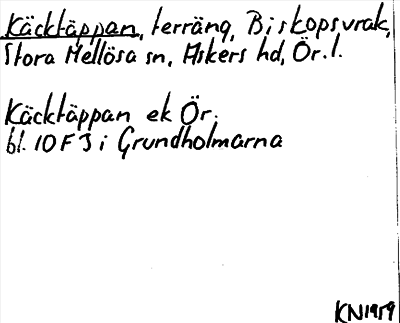 Käcktäppan, terräng, Biskopsvrak,
Stora Mellösa sn, Askers hd, Ör. l.
Käcktäppan ek Ör.
bl. 10F3 i Grundholmarna
KN1959